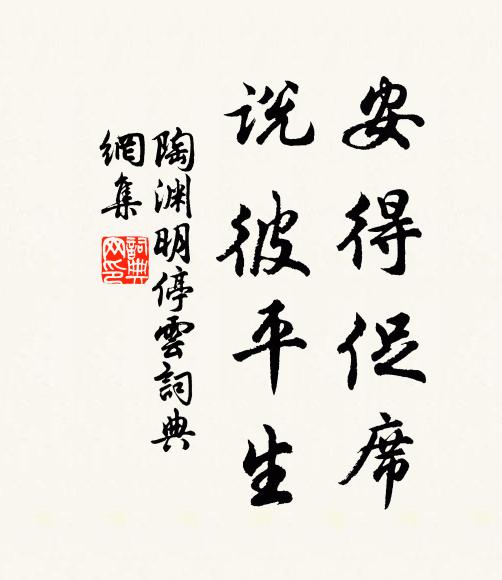 安得促席
說彼平生
陶渊明停雲詞典
網集
詞典
网印